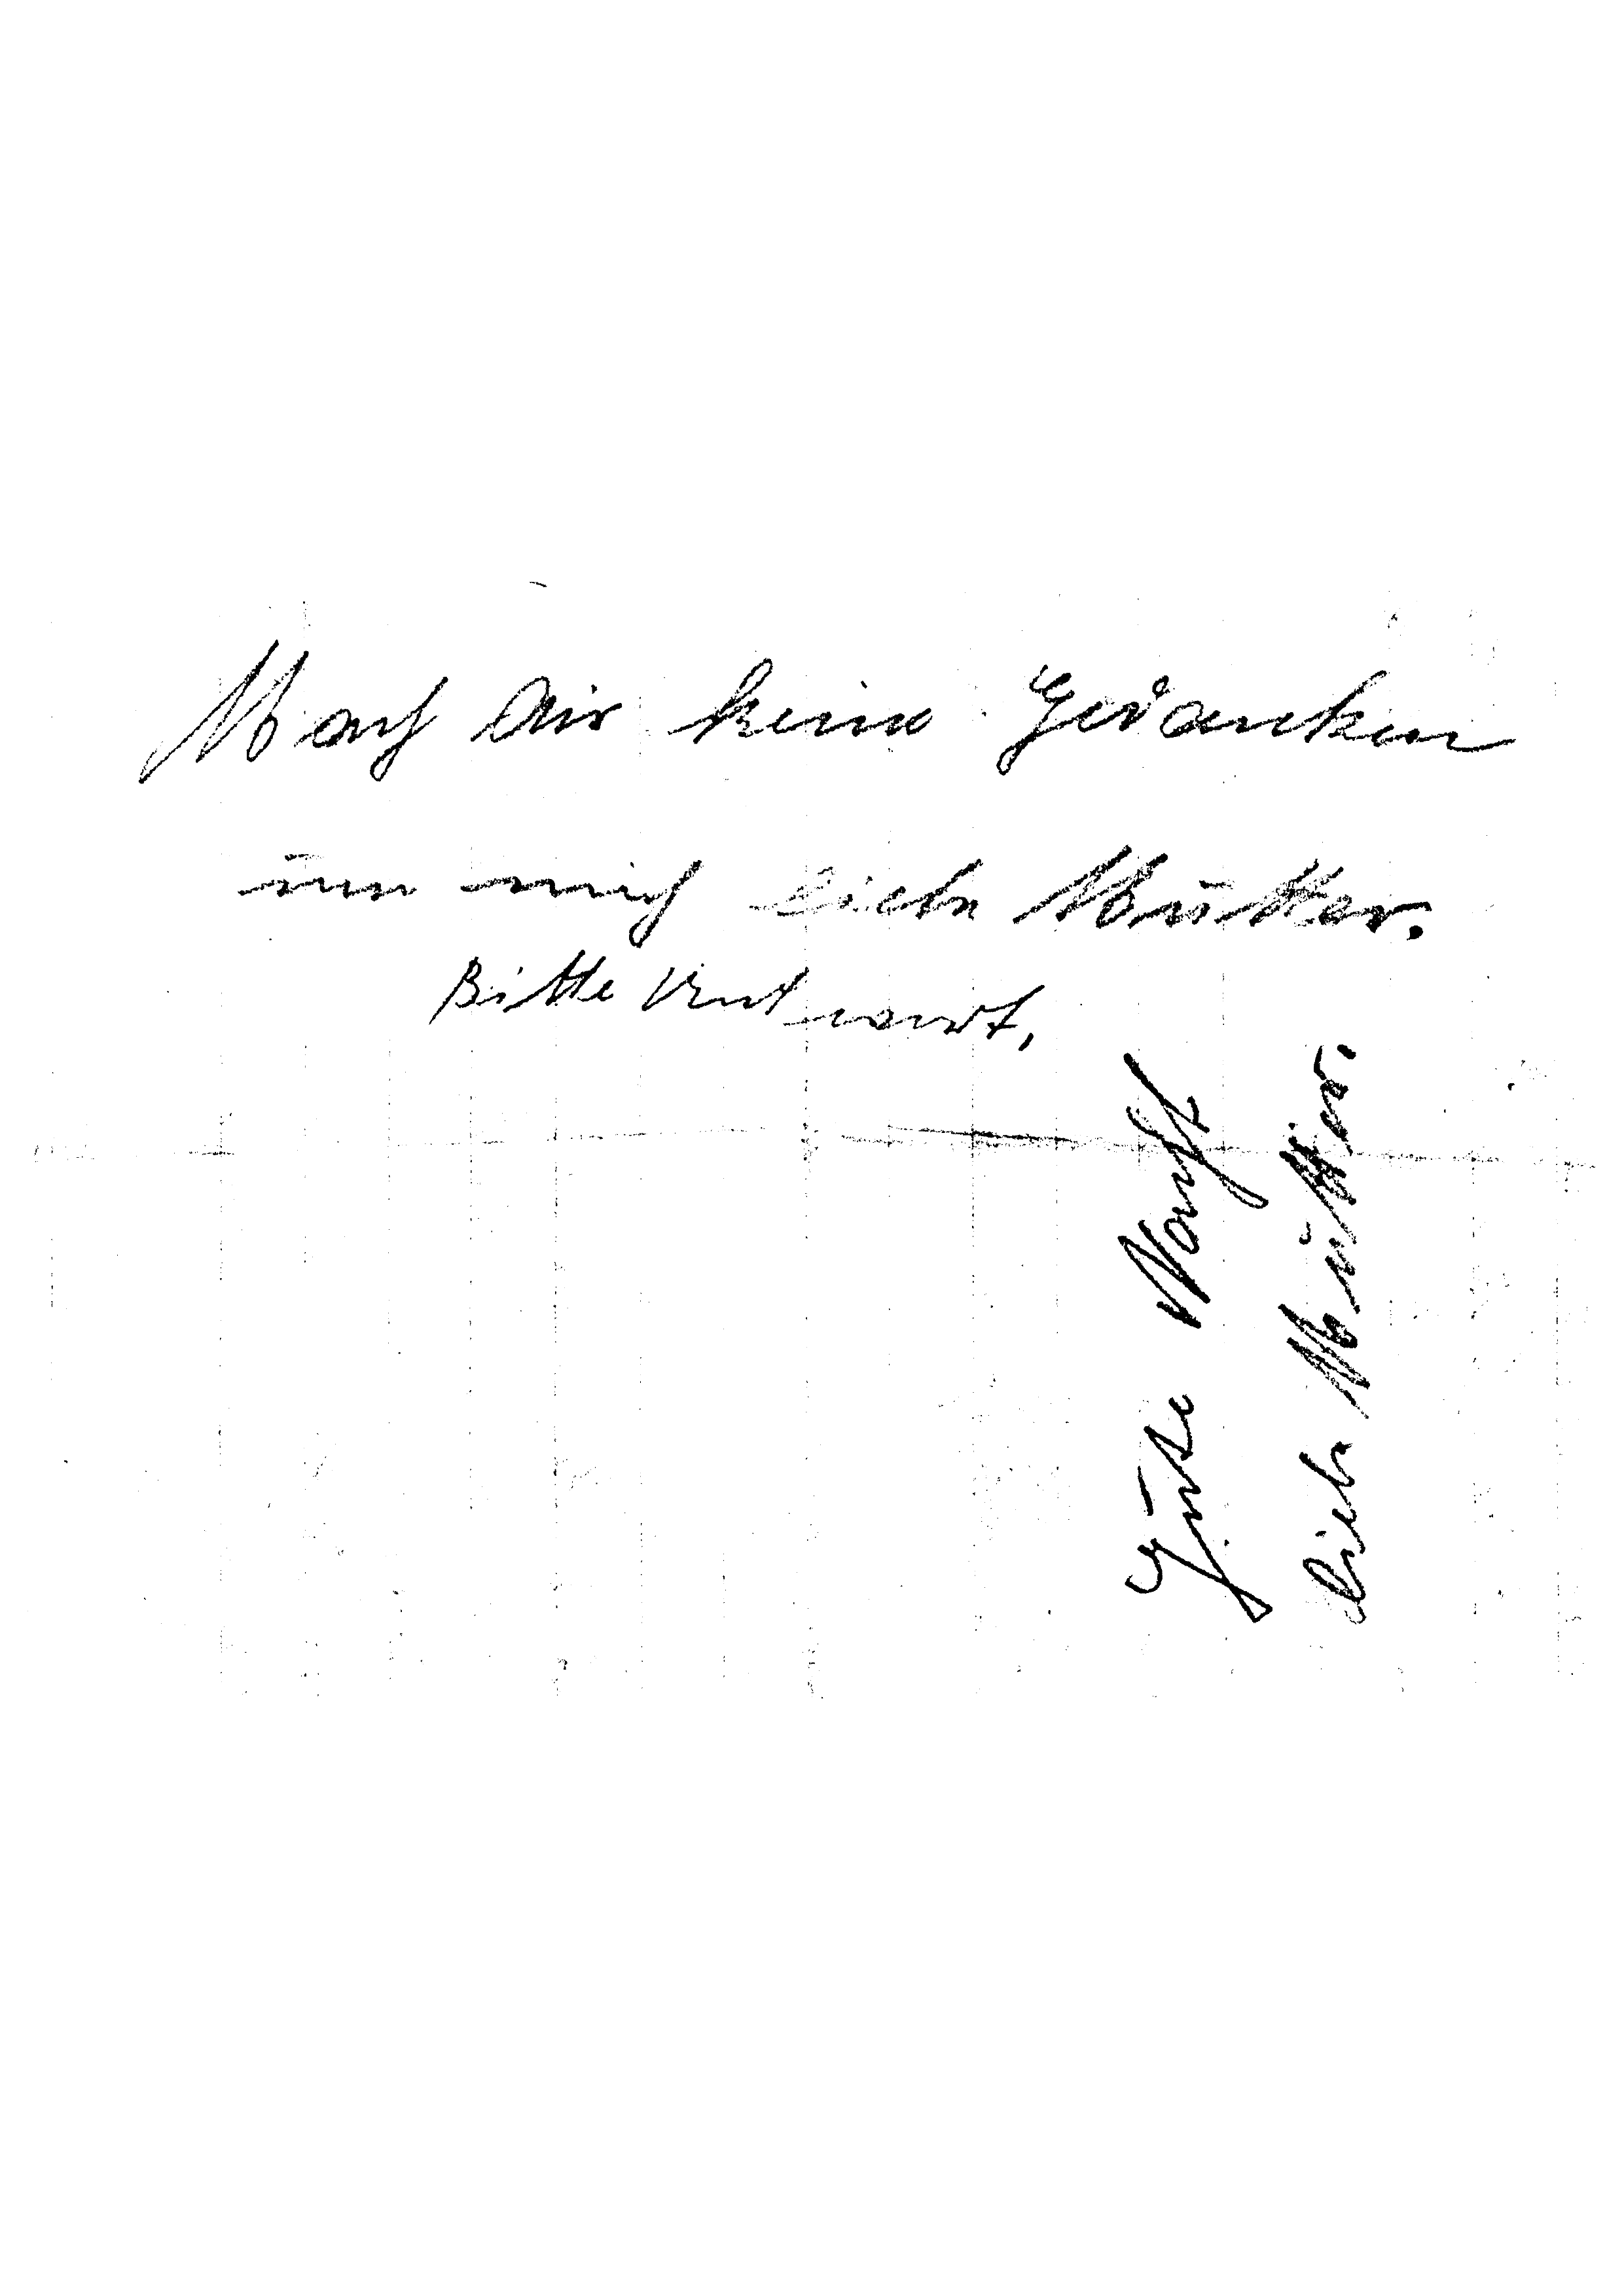 Mach dir keine Gedanken
um mich liebe Mutter.
Bitte Antwort,
Gute Nacht
liebe Mutter.